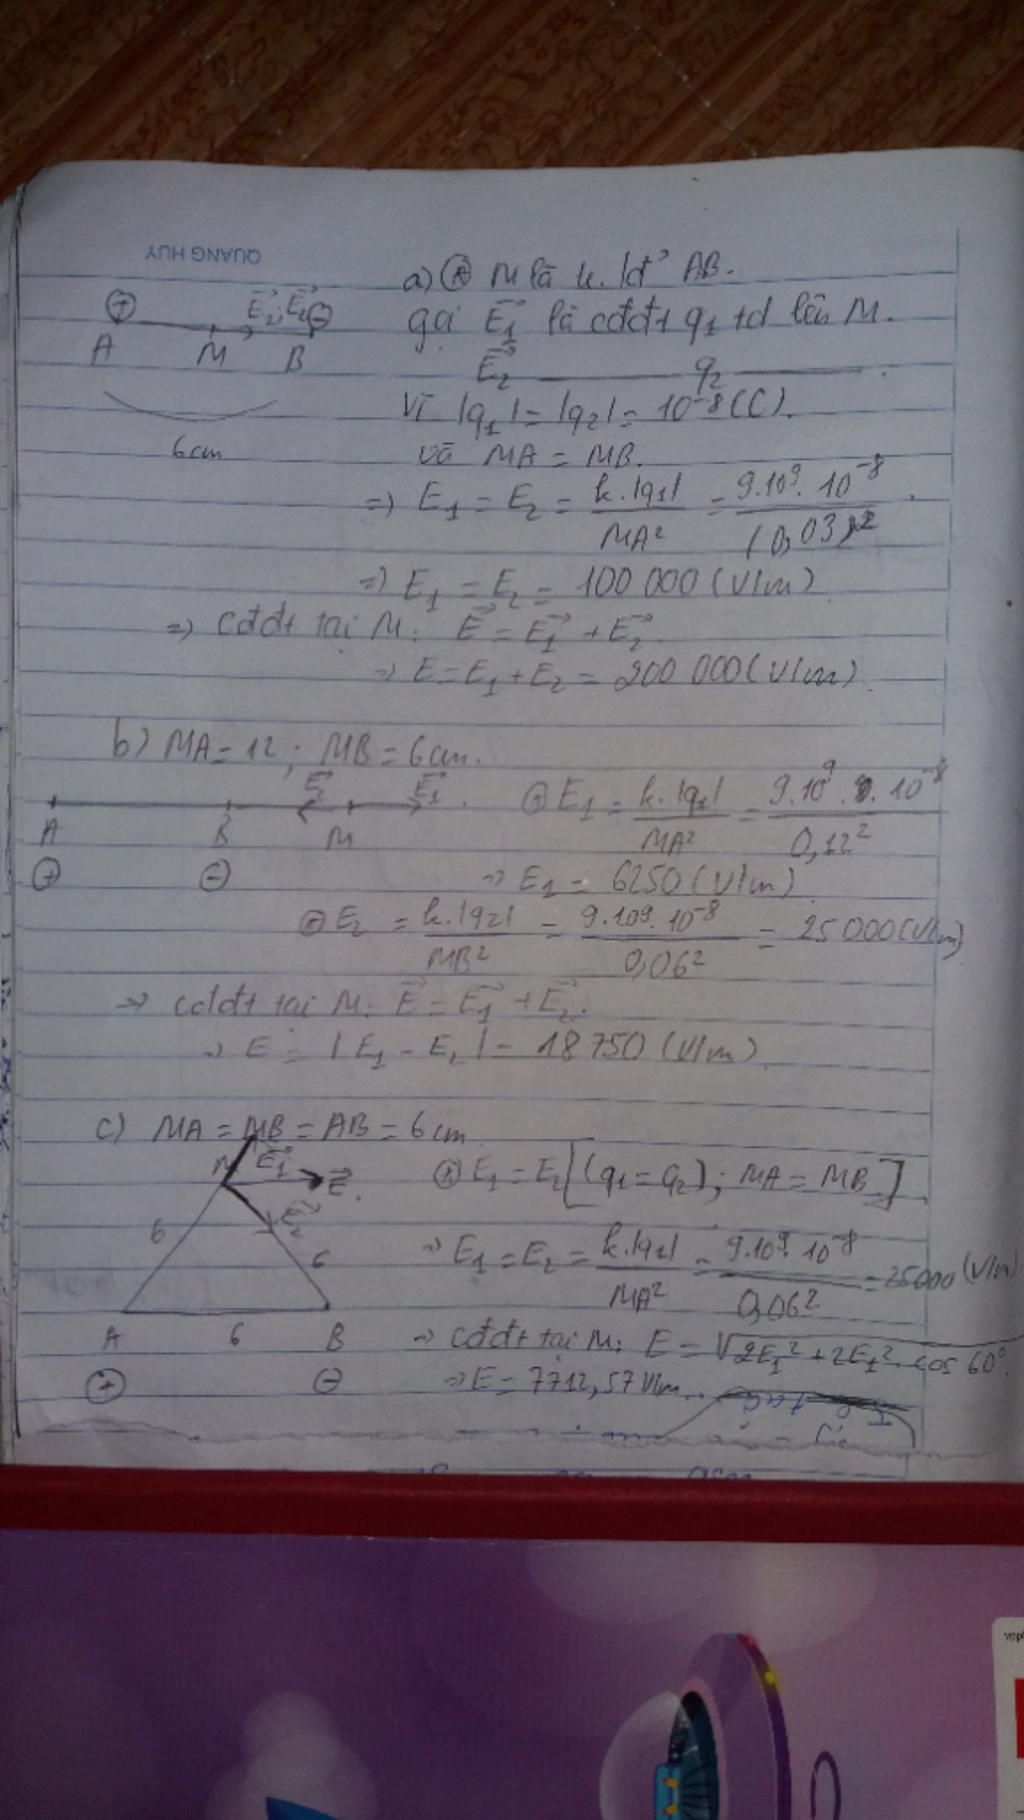 QUANG HUY
a) ⊕ M là t. đ' AB.
gọi E₁ là cđđt q₁ td lên M.
E₂ ——— q₂ ———.
Vì |q₁| = |q₂| = 10⁻⁸ (C).
và MA = MB.
=> E₁ = E₂ = k.|q₁| / MA² = 9.10⁹.10⁻⁸ / (0,03)²
=> E₁ = E₂ = 100 000 (V/m)
=> Cđđt tại M: E = E₁ + E₂
=> E = E₁ + E₂ = 200 000 (V/m)
+ E₁, E₂ -
A M B
6cm
b) MA = 12 ; MB = 6cm.
E₂ E₁
A B M
+ -
⊕ E₁ = k.|q₁| / MA² = 9.10⁹.10⁻⁸ / 0,12²
=> E₁ = 6250 (V/m)
⊕ E₂ = k.|q₂| / MB² = 9.10⁹.10⁻⁸ / 0,06² = 25 000 (V/m)
=> cđđt tại M: E = E₁ + E₂.
=> E = |E₁ - E₂| = 18 750 (V/m)
c) MA = MB = AB = 6cm
M E₁ E
E₂
6 6
A 6 B
+ -
⊕ E₁ = E₂ [(q₁ = q₂); MA = MB]
=> E₁ = E₂ = k.|q₁| / MA² = 9.10⁹.10⁻⁸ / 0,06² = 25000 (V/m)
=> cđđt tại M: E = √2E₁² + 2E₁². cos 60°.
=> E = 7712,57 V/m